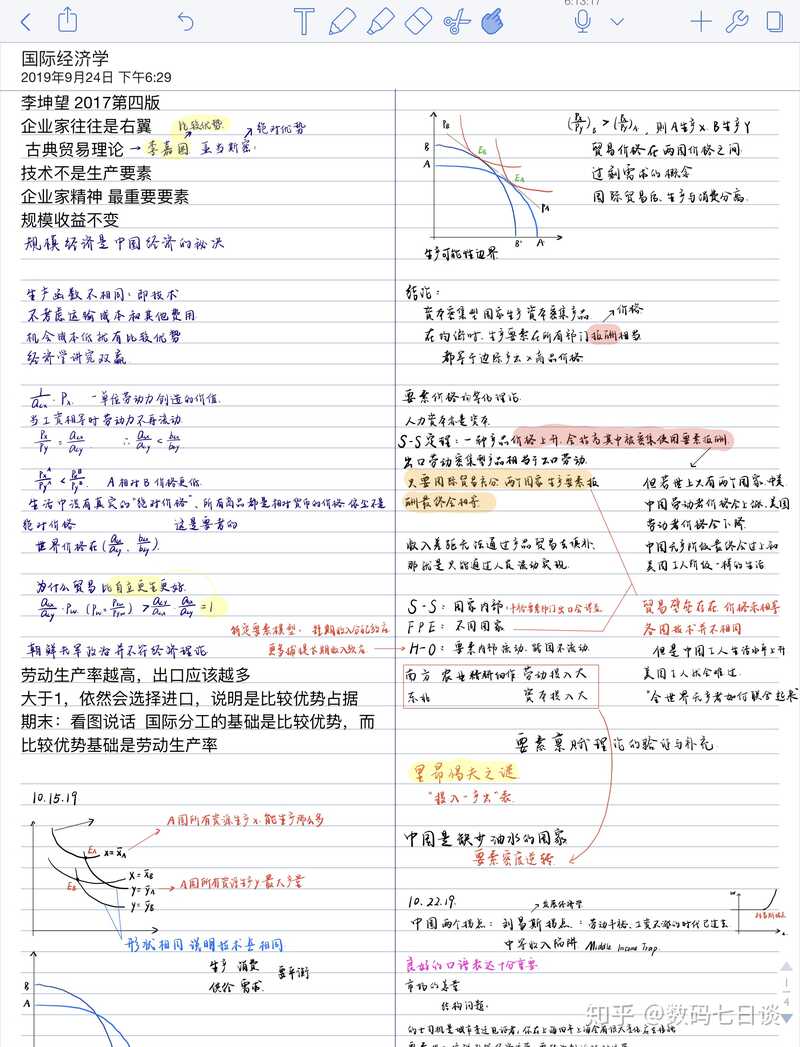 6:13:17
国际经济学
2019年9月24日 下午6:29
李坤望 2017第四版
企业家往往是右翼
比较优势
绝对优势
古典贸易理论 → 李嘉图 亚当斯密.
技术不是生产要素
企业家精神 最重要要素
规模收益不变
规模经济是中国经济的秘诀
生产函数不相同：即技术
不考虑运输成本和其他费用
机会成本低就有比较优势
经济学讲究双赢
一单位劳动力创造的价值.
当工资相等时劳动力不再流动
A相对B价格更低.
生活中没有真实的"绝对价格", 所有商品都是相对货币的价格
绝对价格 这是要考的
世界价格在
为什么贸易比自立更生更好.
特定要素模型. 短期收入分配效应
更多捕捉长期收入效应
劳动生产率越高，出口应该越多
大于1，依然会选择进口，说明是比较优势占据
期末：看图说话 国际分工的基础是比较优势，而
比较优势基础是劳动生产率
10.15.19
A国所有资源生产x.能生产那么多
A国所有资源生产y最大产量
形状相同 说明技术是相同
生产 消费
供给 需求.
要平衡
B
A
PB
B
A
EB
EA
PA
B'
A'
生产可能性边界
则A生产X. B生产Y
贸易价格在两国价格之间
过剩需求的概念
国际贸易后. 生产与消费分离.
结论：
资本密集型国家生产资本密集产品
价格
在均衡时. 生产要素在所有部门报酬相当
都等于边际产出×商品价格
要素价格均等化理论.
人力资本也是资本.
S-S定理：一种产品价格上升. 会抬高其中被密集使用要素报酬.
出口劳动密集型产品相当于出口劳动.
只要国际贸易充分 两个国家生产要素报
酬最终会相等.
但若世上只有两个国家. 中美
中国劳动者价格会上涨. 美国
劳动者价格会下降.
中国无产阶级最终会过上和
美国工人阶级一样的生活
收入差距无法通过产品贸易去填补.
那就是只能通过人员流动实现.
S-S：国家内部.
FPE：不同国家
H-O：要素内部流动. 跨国不流动.
贸易壁垒存在 价格不相等
各国技术并不相同
但是中国工人生活水平上升
美国工人就会难过.
"全世界无产者如何联合起来"
南方 农业精耕细作 劳动投入大
东北 资本投入大
要素禀赋理论的验证与补充
里昂惕夫之谜
"投入-产出"表.
中国是缺少油水的国家
要素密度逆转
10.22.19.
发展经济学
中国两个拐点：刘易斯拐点：劳动平移、工资不涨的时代已过去
中等收入陷阱 Middle Income Trap.
刘易斯拐点
良好的口语表达十分重要
市场的容量
结构问题.
1
4
知乎 @数码七日谈